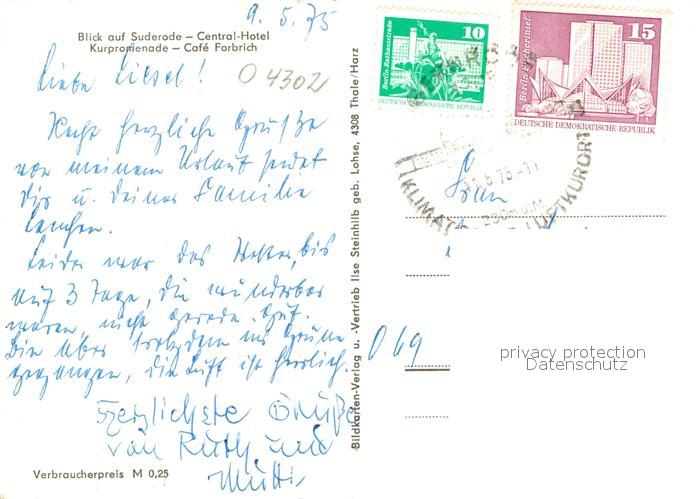 9. 5. 75
Blick auf Suderode – Central-Hotel
Kurpromenade – Café Forbrich
Liebe Liesel!
04302
Recht herzliche Grüße
von meinem Urlaub sendet
Dir u. Deiner Familie
Leider war das Wetter, bis
auf 3 Tage, die wunderbar
waren, nicht gerade gut.
Bin aber trotzdem ins Grüne
gegangen, die Luft ist herrlich.
Herzlichste Grüße
von Ruth und
Mutti
Verbraucherpreis M 0,25
Bildkarten-Verlag u. -Vertrieb Ilse Steinhilb geb. Lohse, 4308 Thale/Harz
10
Berlin-Rathausstraße
DEUTSCHE DEMOKRATISCHE REPUBLIK
15
Berlin-Fischerinsel
DEUTSCHE DEMOKRATISCHE REPUBLIK
KLIMAT LUFTKURORT
Frau
069
privacy protection
Datenschutz